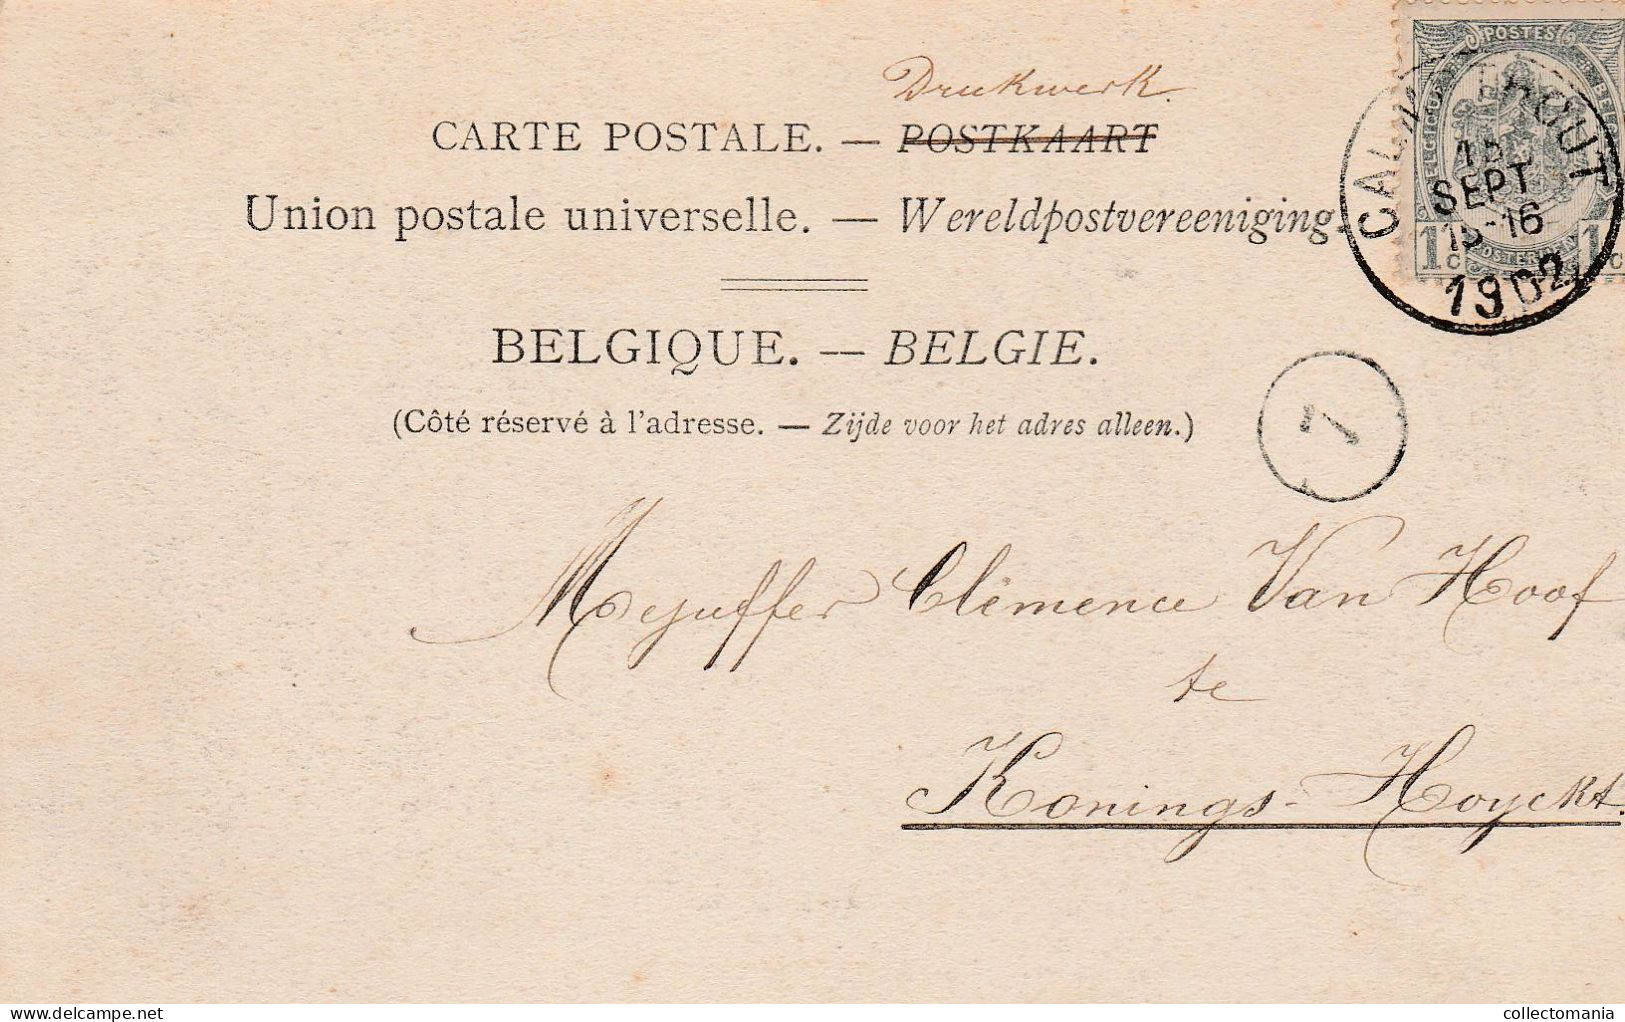 Drukwerk.
CARTE POSTALE. — POSTKAART
Union postale universelle. — Wereldpostvereeniging.
BELGIQUE. — BELGIE.
(Côté réservé à l'adresse. — Zijde voor het adres alleen.)
POSTES
BELGIQUE
1 C 1 C
SEPT
1902
1
Mejuffer Clémence Van Hoof
te
Konings-Hoyckt.
delcampe.net
collectomania